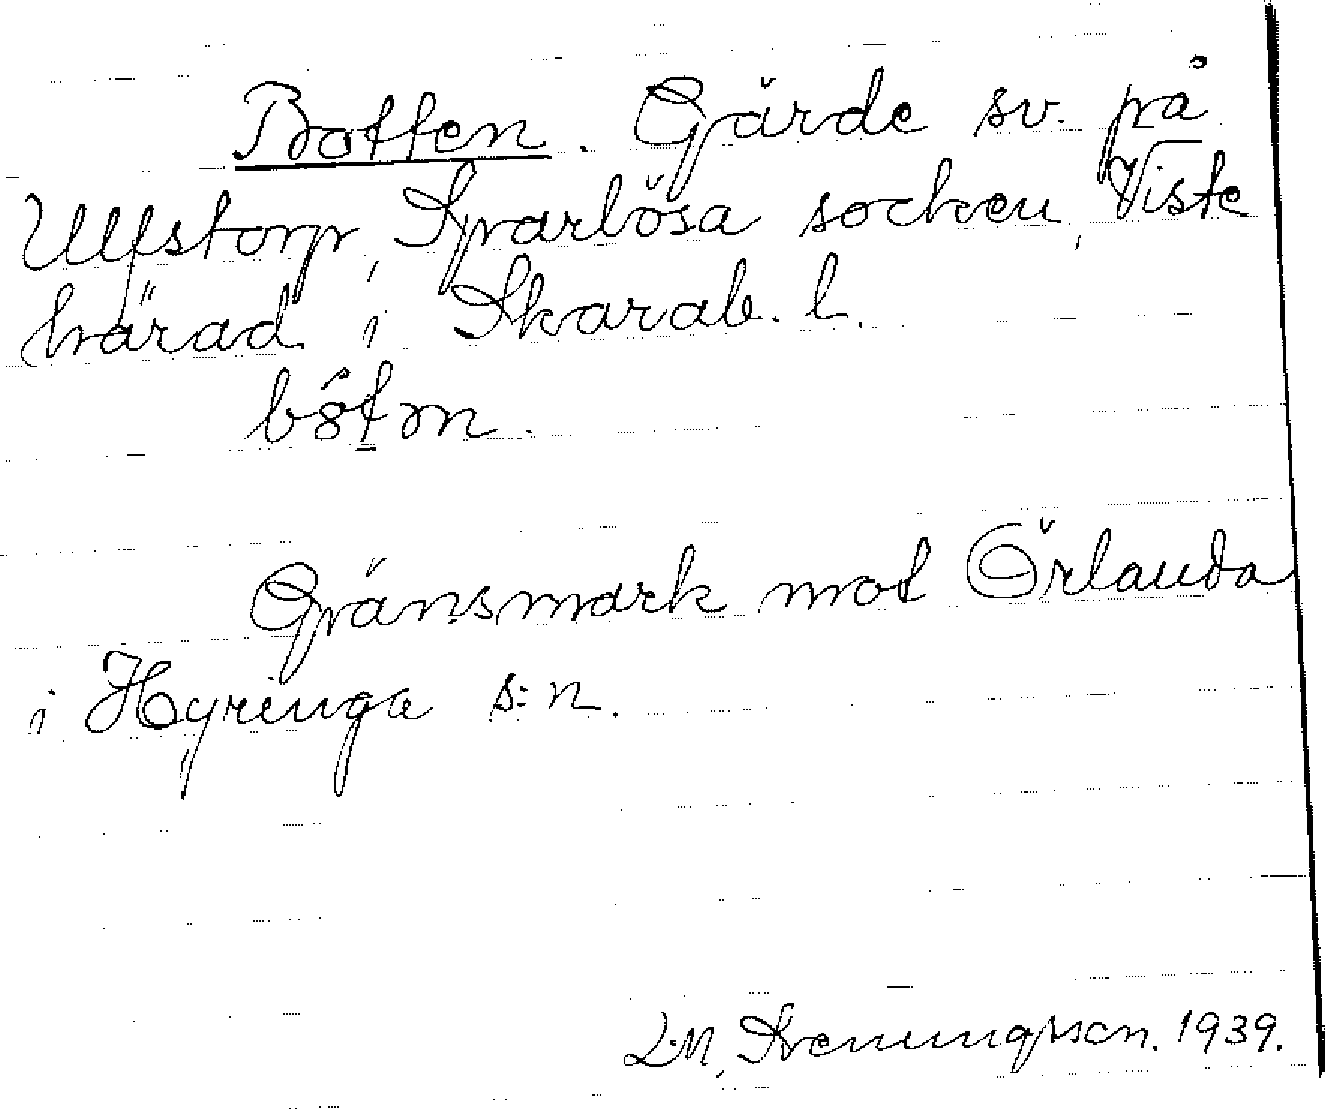 Botten. Gärde sv. på
Ulfstorp, Sparlösa socken, Viste
härad i Skarab. l.
Gränsmark mot Örlauda
i Hyringa s:n.
L.M. Svenungsson. 1939.